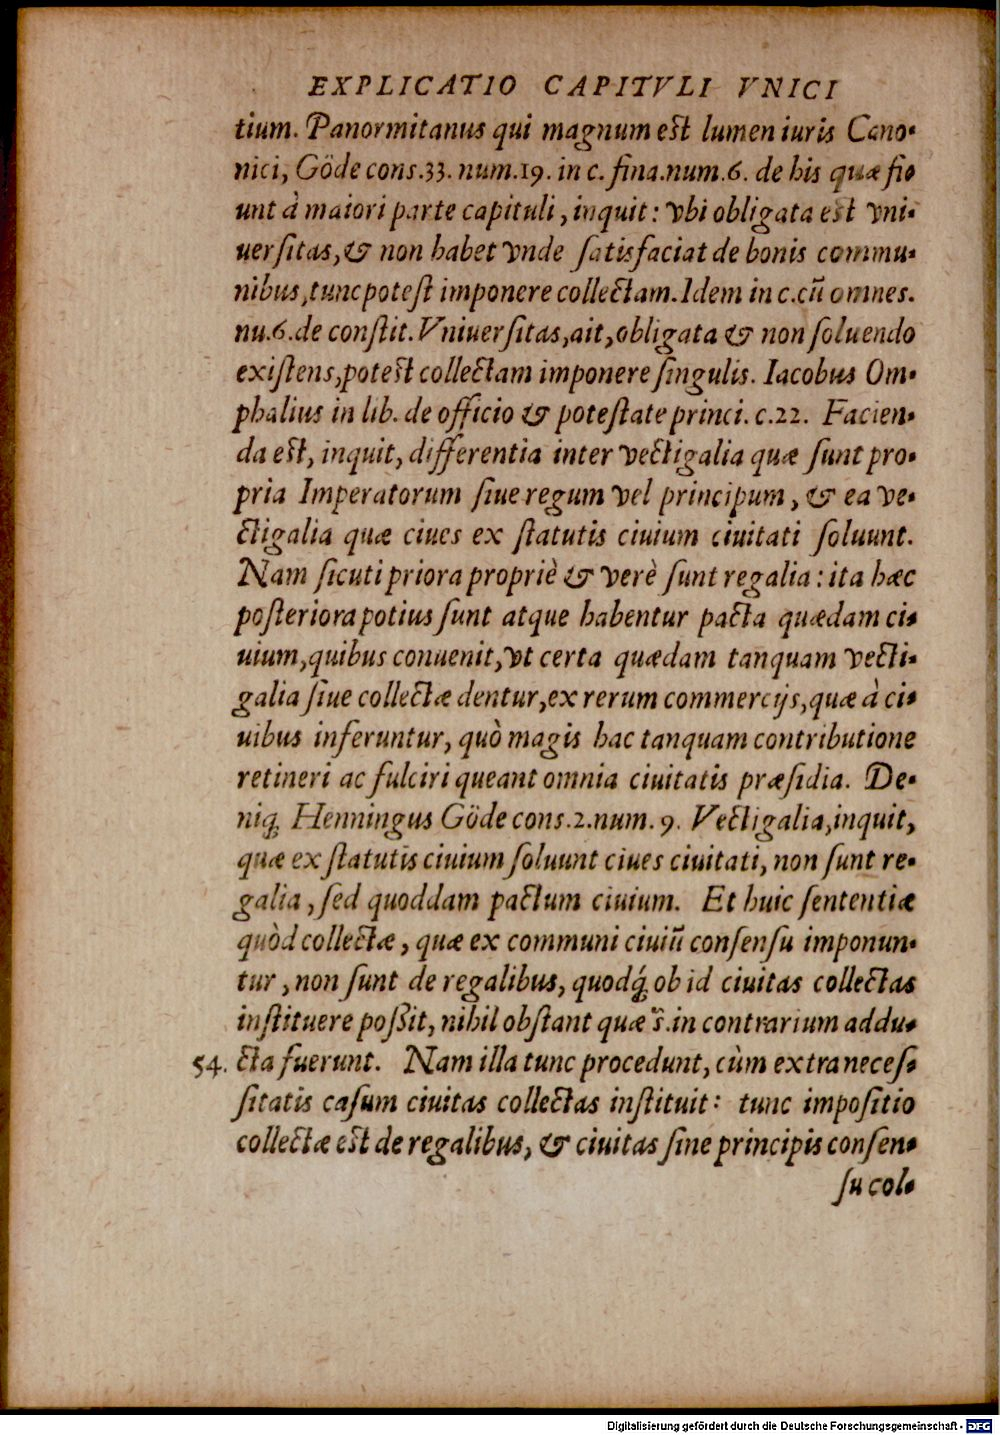 EXPLICATIO CAPITVLI VNICI
tium. Panormitanus qui magnum eſt lumen iuris Cano-
nici, Göde cons.33. num.19. in c. fina.num.6. de his quæ fi-
unt à maiori parte capituli, inquit: vbi obligata eſt vni-
uerſitas, & non habet vnde ſatisfaciat de bonis commu-
nibus, tunc poteſt imponere collectam. Idem in c.cū omnes.
nu.6.de conſtit. Vniuerſitas, ait, obligata & non ſoluendo
exiſtens, poteſt collectam imponere ſingulis. Iacobus Om-
phalius in lib. de officio & poteſtate princi. c.22. Facien-
da eſt, inquit, differentia inter vectigalia quæ ſunt pro-
pria Imperatorum ſiue regum vel principum, & ea ve-
ctigalia quæ ciues ex ſtatutis ciuium ciuitati ſoluunt.
Nam ſicuti priora propriè & verè ſunt regalia: ita hæc
poſteriora potius ſunt atque habentur pacta quædam ci-
uium, quibus conuenit, vt certa quædam tanquam vecti-
galia ſiue collectæ dentur, ex rerum commercijs, quæ à ci-
uibus inferuntur, quò magis hac tanquam contributione
retineri ac fulciri queant omnia ciuitatis præſidia. De-
niq́; Henningus Göde cons.2.num. 9. Vectigalia, inquit,
quæ ex ſtatutis ciuium ſoluunt ciues ciuitati, non ſunt re-
galia, ſed quoddam pactum ciuium. Et huic ſententiæ
quòd collectæ, quæ ex communi ciuiū conſenſu imponun-
tur, non ſunt de regalibus, quodq́; ob id ciuitas collectas
inſtituere poßit, nihil obſtant quæ s̃.in contrarium addu-
54. cta fuerunt. Nam illa tunc procedunt, cùm extra neceſ-
ſitatis caſum ciuitas collectas inſtituit: tunc impoſitio
collectæ eſt de regalibus, & ciuitas ſine principis conſen-
ſu col-
Digitalisierung gefördert durch die Deutsche Forschungsgemeinschaft - DFG